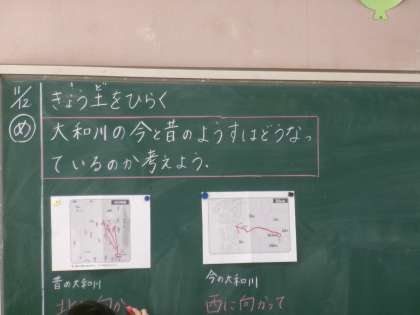 11/2 きょう土をひらく
め 大和川の今と昔のようすはどうなっ
ているのか考えよう。
昔の大和川
今の大和川
北に向か
西に向かって